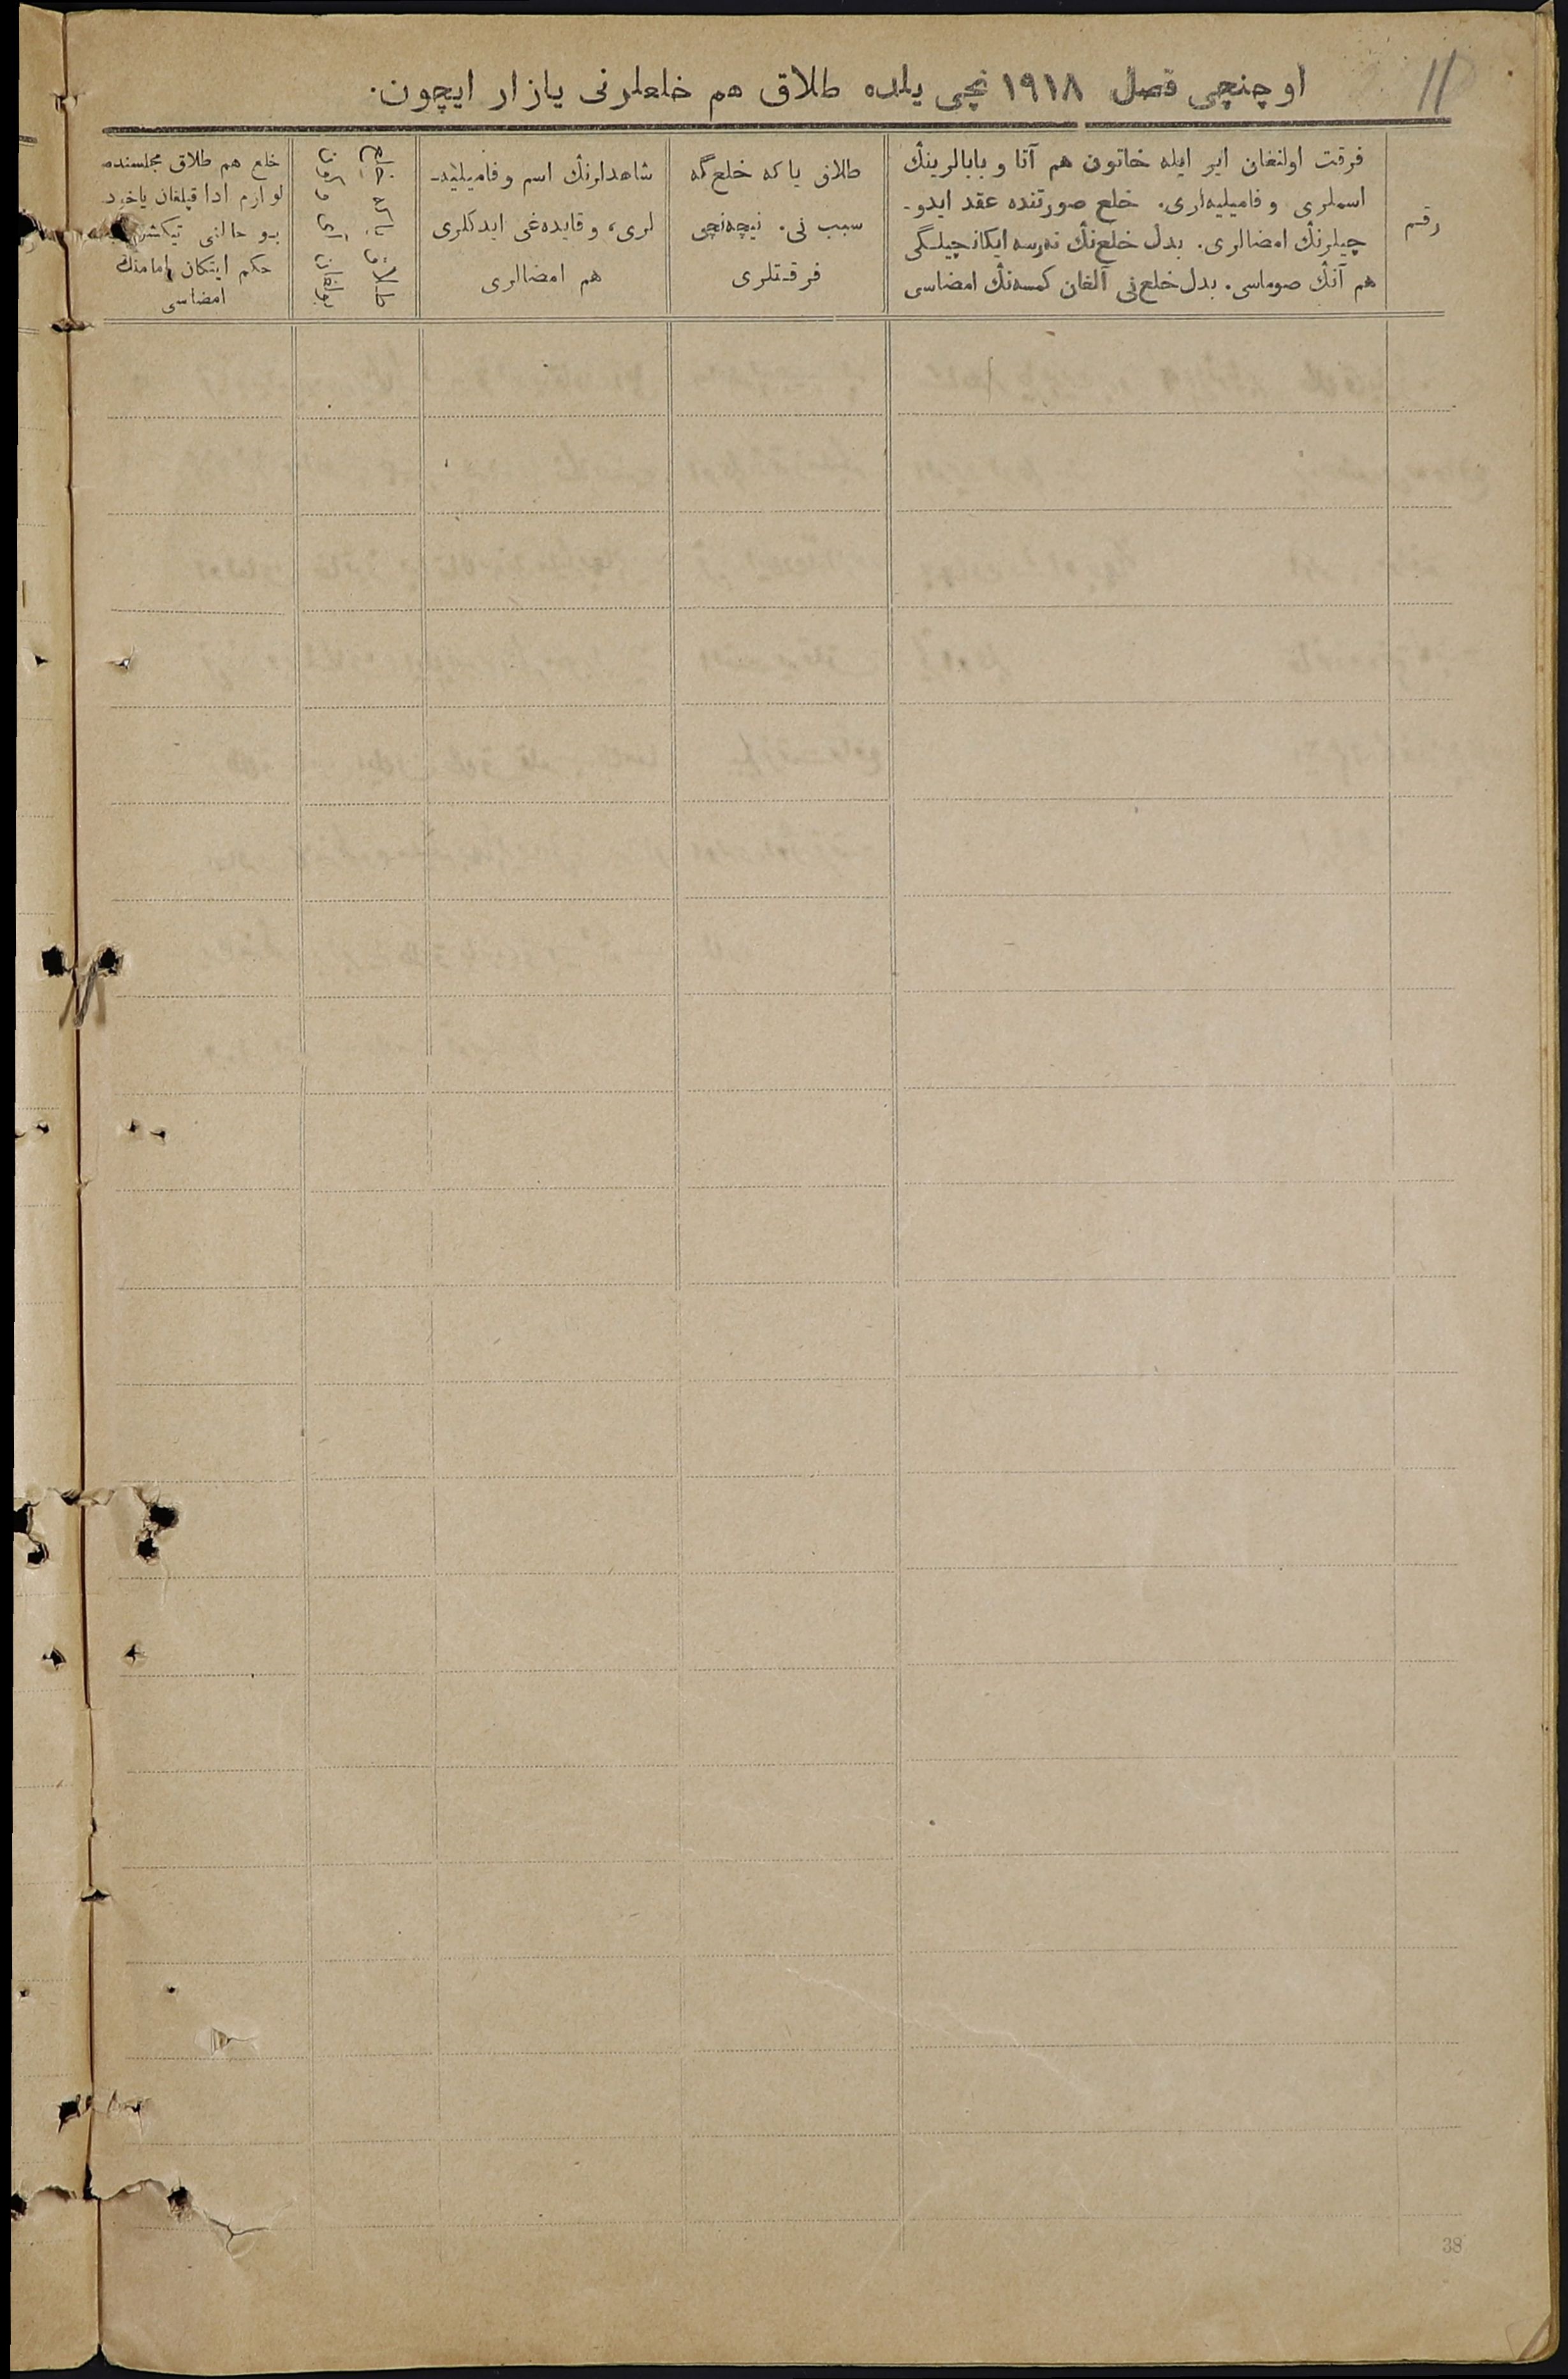 11
اوچنچی فصل ١٩١٨ نچی یلده طلاق هم خلعلرنی یازار ایچون.
رقم
فرقت اولنغان ایر ایله خاتون هم آتا و بابالرینڭ
اسملری و فامیلیه‌لری. خلع صورتنده عقد ایدو-
چیلرنڭ امضالری. بدل خلع‌نڭ نه‌رسه ایکانچیلگی
هم آنڭ صوماسی. بدل خلع‌نی آلغان کمسه‌نڭ امضاسی
طلاق یا که خلع گه
سبب نی. نیچه‌نچی
فرقتلری
شاهدلرنڭ اسم و فامیلیه-
لری، و قایده‌غی ایدکلری
هم امضالری
طلاق یا که خلع
خلع هم طلاق مجلسنده
لوازم ادا قیلغان یاخود
بو حالنی تیکشروب
حکم ایتکان امامنڭ
امضاسی
38